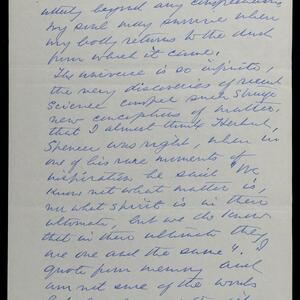 utterly beyond any comprehension
My soul may survive when
my body returns to the dust
from which it came.
The universe is so infinite,
the new discoveries of recent
Science compel such strange
new conceptions of matter,
that I almost think Herbert
Spencer was right, when in
one of his rare moments of
inspiration he said "We
know not what matter is,
nor what spirit is in their
ultimate, but we do know
that in their ultimate they
are one and the same". I
quote from memory and
am not sure of the words